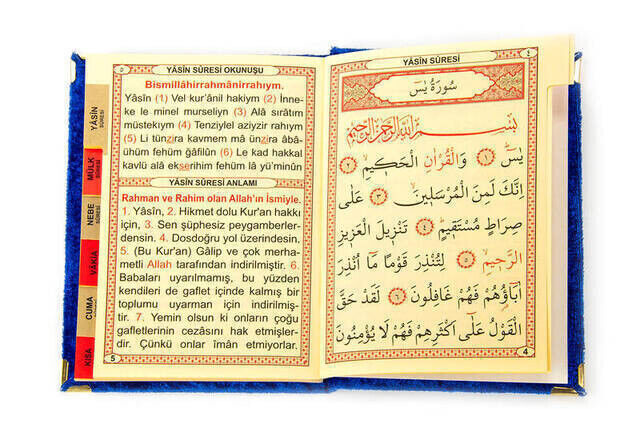 YÂSİN SÛRESİ OKUNUŞU
٥
Bismillâhirrahmânirrahıym.
Yâsîn (1) Vel kur'ânil hakiym (2) İnne-
ke le minel murseliyn (3) Alâ sırâtım
müstekıym (4) Tenziylel aziyzir rahıym
(5) Li tünzira kavmem mâ ünzira âbâ-
ühüm fehüm ğâfilûn (6) Le kad hakkal
kavlü alâ ekserihim fehüm lâ yü'minûn
YÂSİN SÛRESİ ANLAMI
Rahman ve Rahim olan Allah'ın ismiyle.
1. Yâsîn, 2. Hikmet dolu Kur'an hakkı
için, 3. Sen şüphesiz peygamberler-
densin. 4. Dosdoğru yol üzerindesin.
5. (Bu Kur'an) Gâlip ve çok merha-
metli Allah tarafından indirilmiştir. 6.
Babaları uyarılmamış, bu yüzden
kendileri de gaflet içinde kalmış bir
toplumu uyarman için indirilmiş-
tir. 7. Yemin olsun ki onların çoğu
gafletlerinin cezasını hak etmişler-
dir. Çünkü onlar îmân etmiyorlar.
5
YÂSİN
SÛRESİ
MÜLK
NEBE
SÛRESİ
VÂKIA
CUMA
KISA
YÂSİN SÛRESİ
٤
سُورَةُ يٰسٓ
بِسْمِ اللّٰهِ الرَّحْمٰنِ الرَّحِيمِ
يٰسٓ ﴿١﴾ وَالْقُرْاٰنِ الْحَكِيمِ ﴿٢﴾
اِنَّكَ لَمِنَ الْمُرْسَلِينَ ﴿٣﴾ عَلٰى
صِرَاطٍ مُسْتَقِيمٍ ﴿٤﴾ تَنْزِيلَ الْعَزِيزِ
الرَّحِيمِ ﴿٥﴾ لِتُنْذِرَ قَوْمًا مَٓا اُنْذِرَ
اٰبَٓاؤُهُمْ فَهُمْ غَافِلُونَ ﴿٦﴾ لَقَدْ حَقَّ
الْقَوْلُ عَلٰٓى اَكْثَرِهِمْ فَهُمْ لَا يُؤْمِنُونَ
4